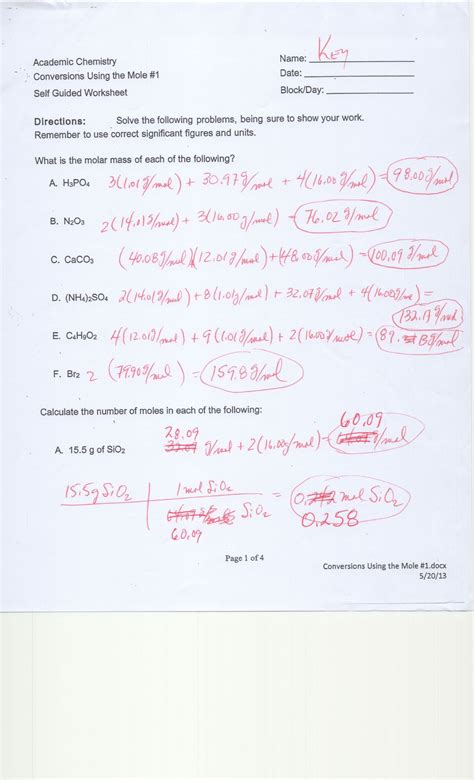 Academic Chemistry
Name: Key
Conversions Using the Mole #1
Date:
Self Guided Worksheet
Block/Day:
Directions: Solve the following problems, being sure to show your work.
Remember to use correct significant figures and units.
What is the molar mass of each of the following?
A. H3PO4 3(1.01g/mol) + 30.97g/mol + 4(16.00g/mol) = 98.00g/mol
B. N2O3 2(14.01g/mol) + 3(16.00g/mol) = 76.02g/mol
C. CaCO3 (40.08g/mol)(12.01g/mol)+(48.00g/mol)=100.09g/mol
D. (NH4)2SO4 2(14.01g/mol)+8(1.01g/mol)+32.07g/mol+4(16.00g/mol)=
132.17g/mol
E. C4H9O2 4(12.01g/mol) + 9(1.01g/mol) + 2(16.00g/mol)=89.13g/mol
F. Br2 2(79.90g/mol) = 159.8g/mol
Calculate the number of moles in each of the following:
60.09
28.09
A. 15.5 g of SiO2 g/mol + 2(16.00g/mol)= g/mol
15.5g SiO2 1 mol SiO2 = 0. mol SiO2
SiO2 0.258
60.09
Page 1 of 4
Conversions Using the Mole #1.docx
5/20/13